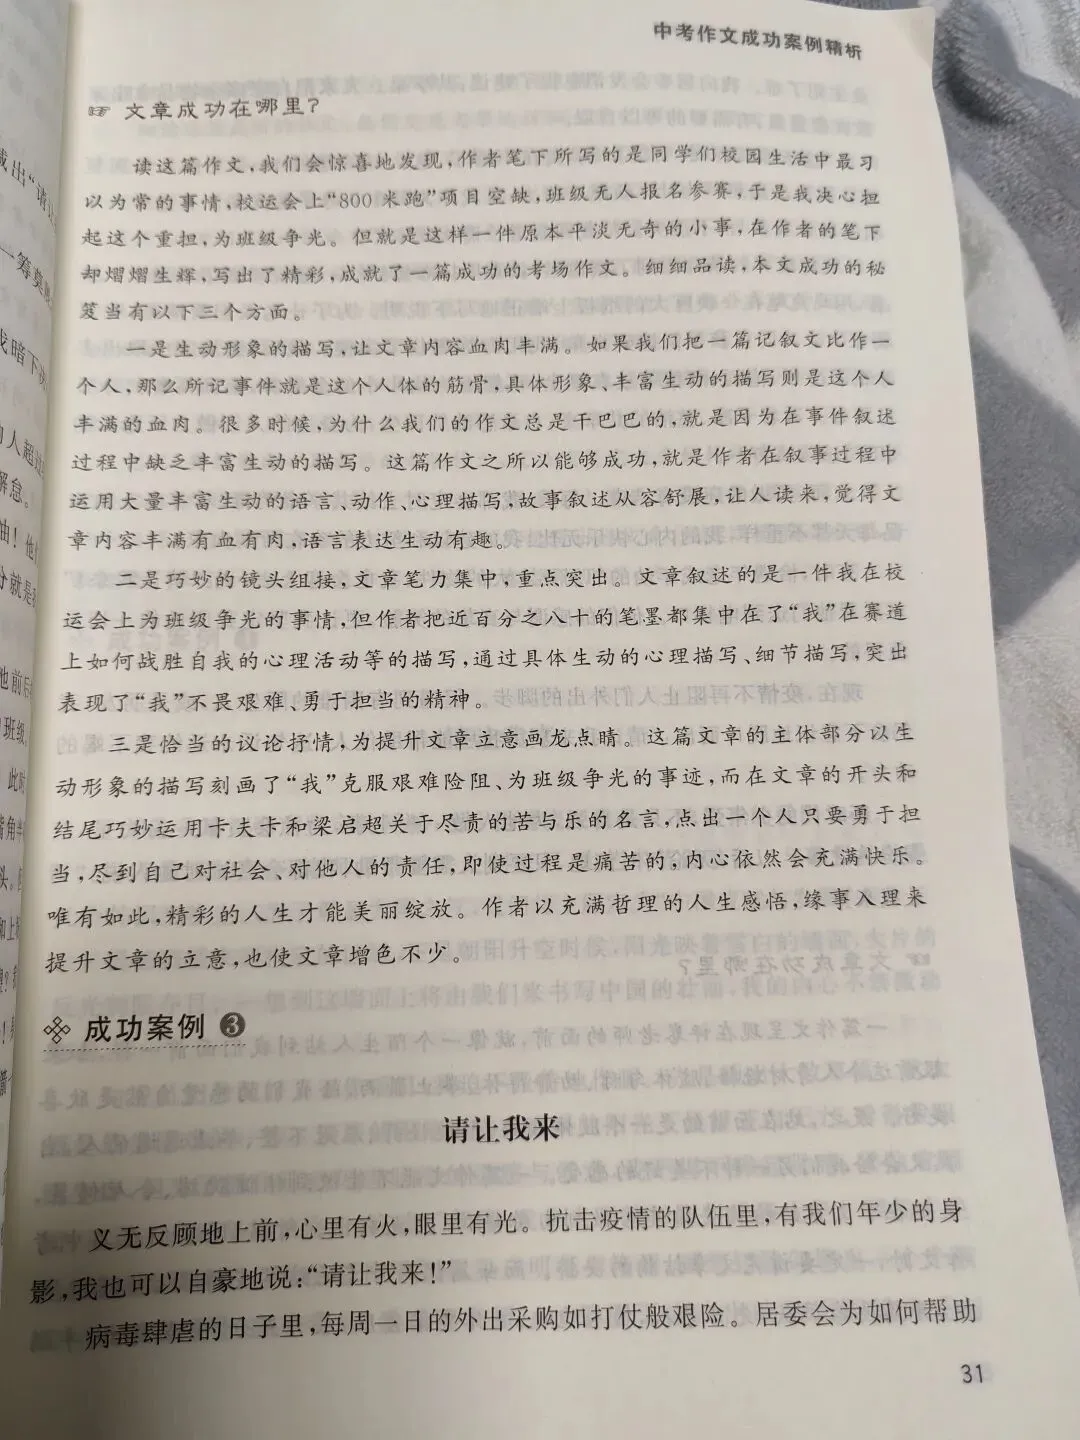 中考作文成功案例精析
☞ 文章成功在哪里？
读这篇作文，我们会惊喜地发现，作者笔下所写的是同学们校园生活中最习
以为常的事情，校运会上“800米跑”项目空缺，班级无人报名参赛，于是我决心担
起这个重担，为班级争光。但就是这样一件原本平淡无奇的小事，在作者的笔下
却熠熠生辉，写出了精彩，成就了一篇成功的考场作文。细细品读，本文成功的秘
笈当有以下三个方面。
一是生动形象的描写，让文章内容血肉丰满。如果我们把一篇记叙文比作一
个人，那么所记事件就是这个人体的筋骨，具体形象、丰富生动的描写则是这个人
丰满的血肉。很多时候，为什么我们的作文总是干巴巴的，就是因为在事件叙述
过程中缺乏丰富生动的描写。这篇作文之所以能够成功，就是作者在叙事过程中
运用大量丰富生动的语言、动作、心理描写，故事叙述从容舒展，让人读来，觉得文
章内容丰满有血有肉，语言表达生动有趣。
二是巧妙的镜头组接，文章笔力集中，重点突出。文章叙述的是一件我在校
运会上为班级争光的事情，但作者把近百分之八十的笔墨都集中在了“我”在赛道
上如何战胜自我的心理活动等的描写，通过具体生动的心理描写、细节描写，突出
表现了“我”不畏艰难、勇于担当的精神。
三是恰当的议论抒情，为提升文章立意画龙点睛。这篇文章的主体部分以生
动形象的描写刻画了“我”克服艰难险阻、为班级争光的事迹，而在文章的开头和
结尾巧妙运用卡夫卡和梁启超关于尽责的苦与乐的名言，点出一个人只要勇于担
当，尽到自己对社会、对他人的责任，即使过程是痛苦的，内心依然会充满快乐。
唯有如此，精彩的人生才能美丽绽放。作者以充满哲理的人生感悟，缘事入理来
提升文章的立意，也使文章增色不少。
成功案例 3
请让我来
义无反顾地上前，心里有火，眼里有光。抗击疫情的队伍里，有我们年少的身
影，我也可以自豪地说：“请让我来！”
病毒肆虐的日子里，每周一日的外出采购如打仗般艰险。居委会为如何帮助
31